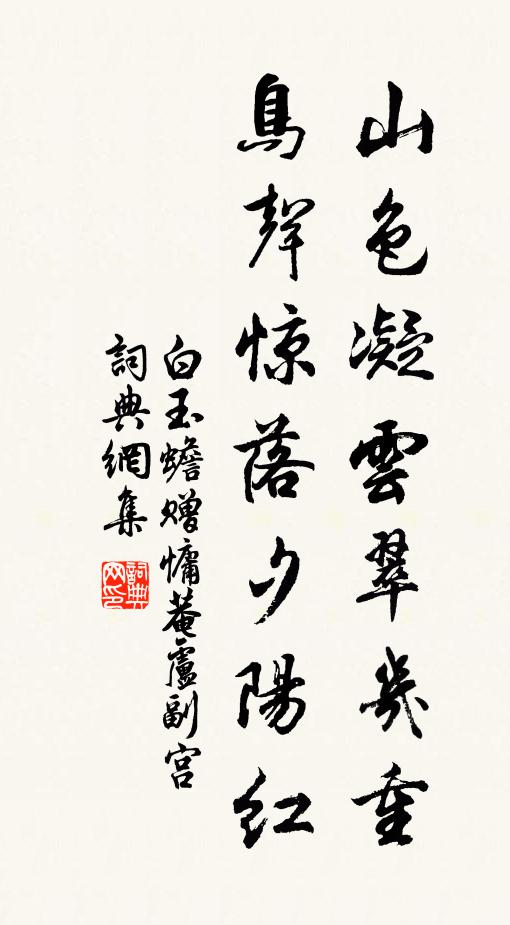 山色凝雲翠幾重
鳥聲惊落夕陽紅
白玉蟾赠慵菴盧副宫
詞典網集
詞典网印